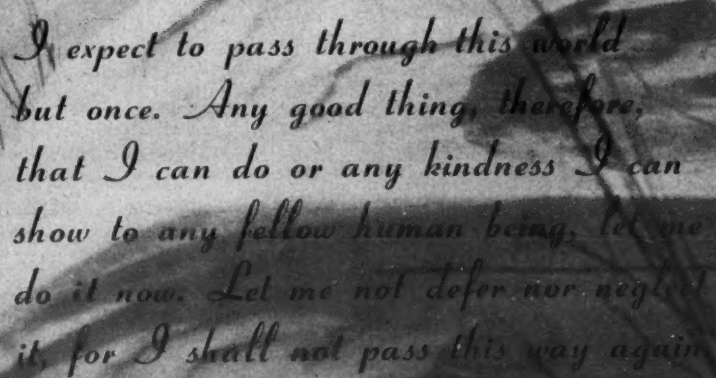 I expect to pass through this world
but once. Any good thing, therefore,
that I can do or any kindness I can
show to any fellow human being, let me
do it now. Let me not defer nor neglect
it, for I shall not pass this way again.